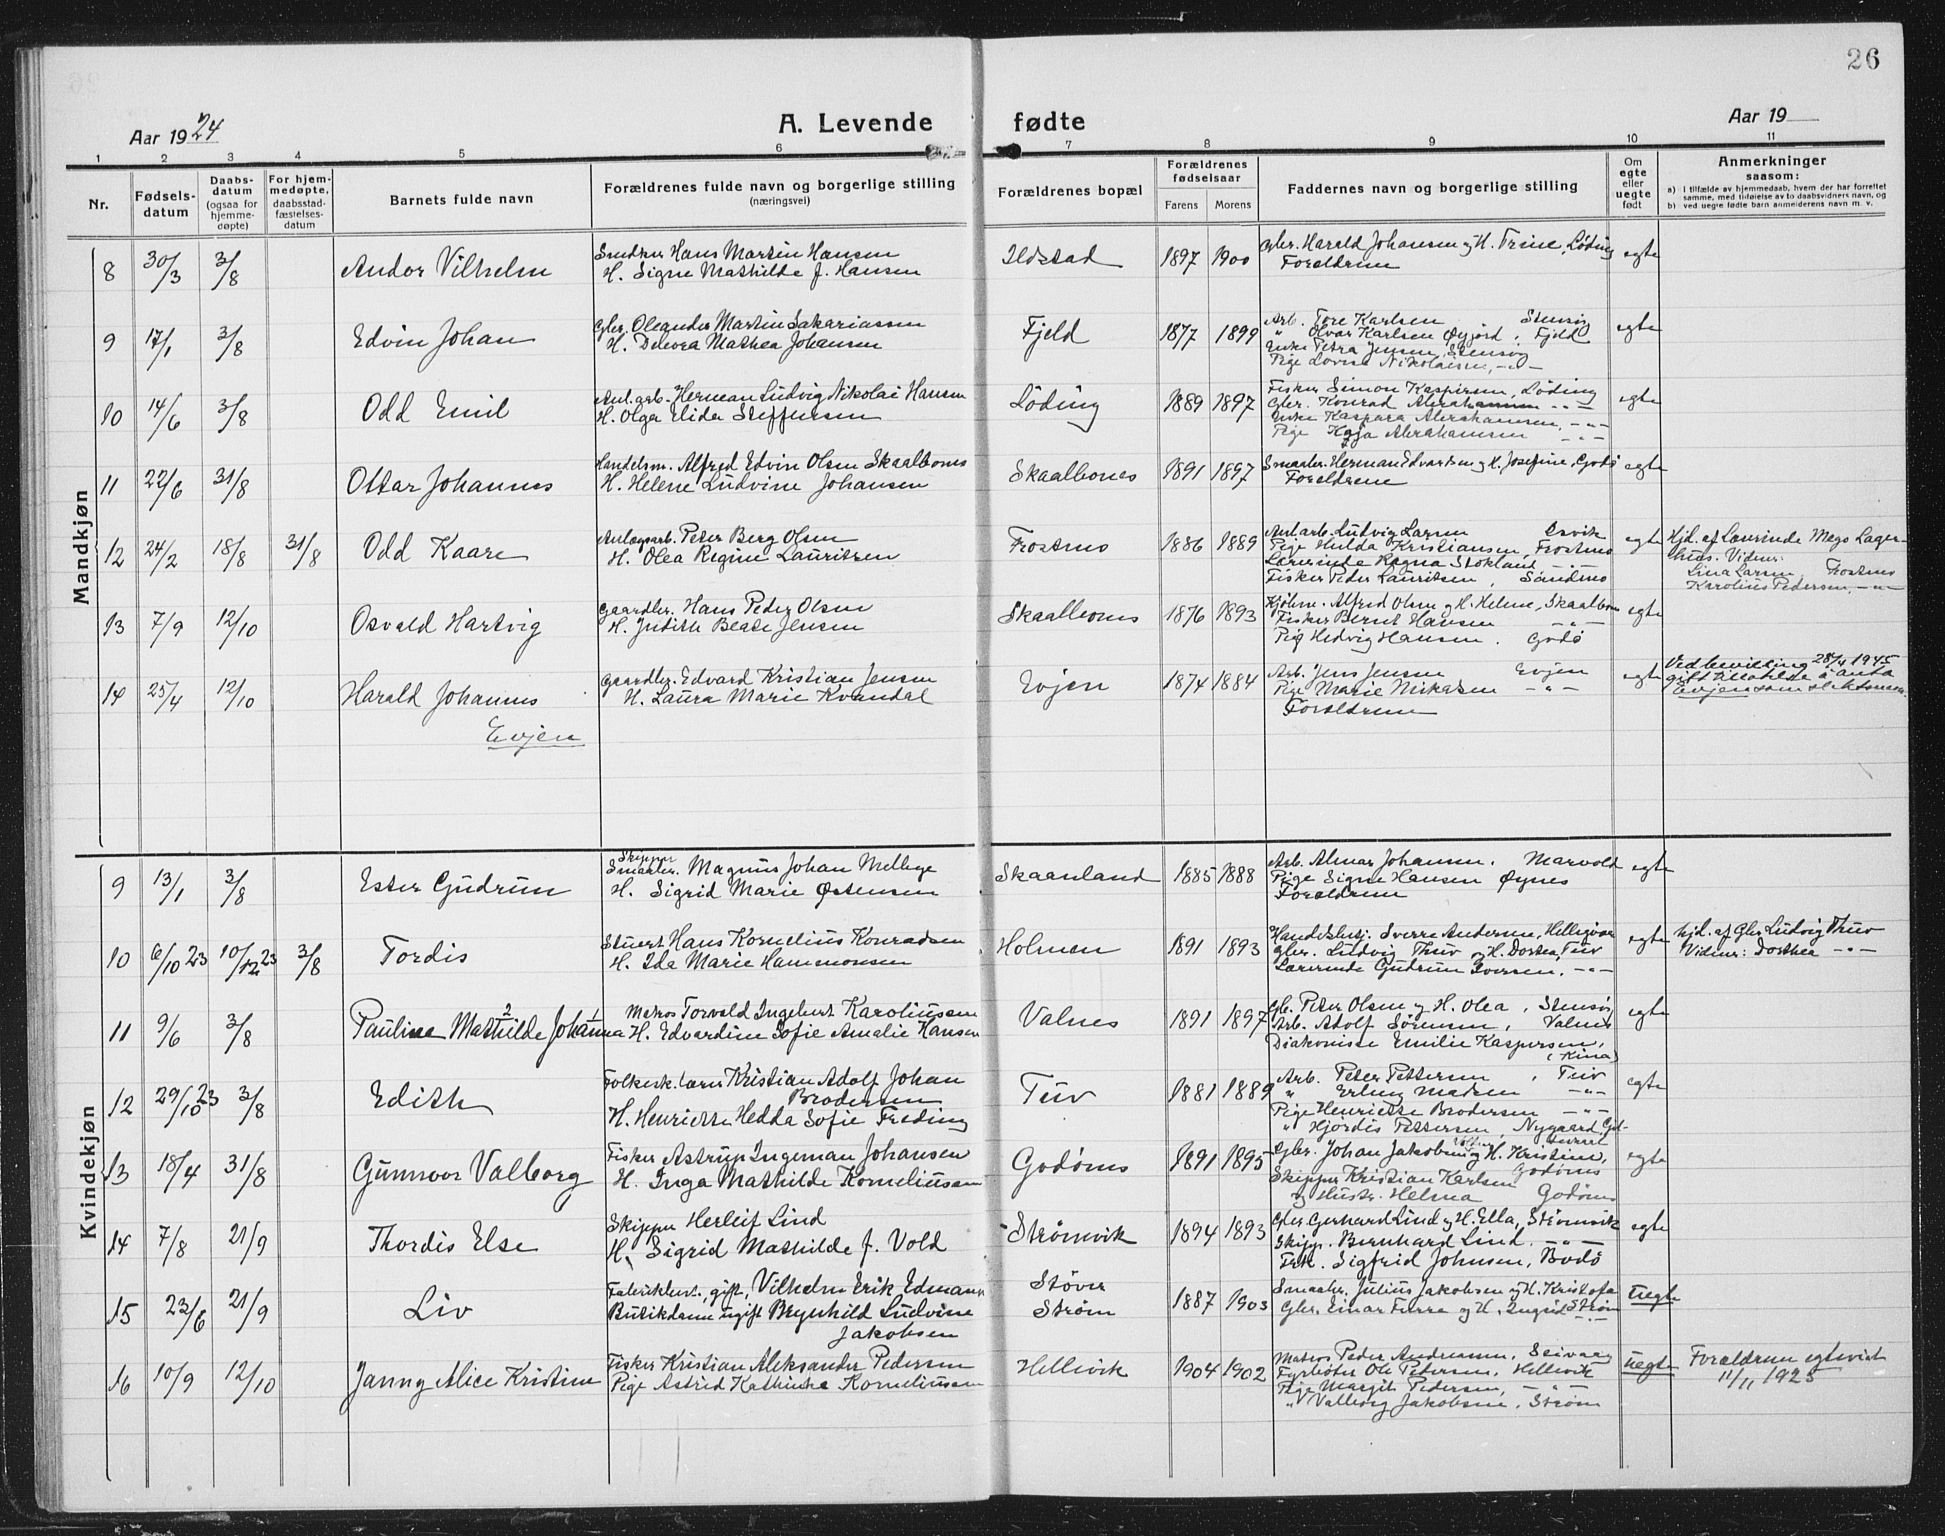 26
Aar 1924 A. Levende fødte Aar 19
1 2 3 4 5 6 7 8 9 10 11
Nr. Fødselsdatum Daabsdatum (ogsaa for hjemmedøpte) For hjemmedøpte, daabsstadfæstelsesdatum Barnets fulde navn Forældrenes fulde navn og borgerlige stilling (næringsvei) Forældrenes bopæl Forældrenes fødselsaar Farens Morens Faddernes navn og borgerlige stilling Om egte eller uegte født Anmerkninger saasom:
a) I tilfælde av hjemmedaab, hvem der har forrettet samme, med tilføielse av to daabsvidners navn, og
b) ved uegte fødte barn anmelderens navn m. v.
Mandkjøn
8 30/3 3/8 Andor Vilhelm Snedker Hans Martin Hansen Ildstad 1897 1900 Gbr. Harald Johansen og H. Trine, Løding egte
H. Signe Mathilde f. Hansen Foreldrene
9 17/1 3/8 Edvin Johan Gbr. Oleander Martin Sakariassen Fjeld 1877 1899 Arb. Tore Karlsen Stensø egte
H. Mathea Johansen " Olvar Karlsen Øyjord, Fjeld
Enke Petra Jensen, Stensø
Pige Lovise Nikolaisen, -"-
10 14/6 3/8 Odd Emil Anl.arb. Herman Ludvig Nikolai Hansen Løding 1889 1897 Fisker Simon Kaspersen, Løding egte
H. Olga Elida Steffensen Gbr. Konrad Abrahamsen -"-
Enke Kaspara Abrahamsen, -"-
Pige Kaja Abrahamsen -"-
11 22/6 31/8 Ottar Johannes Handelsm. Alfred Edvin Olsen Skaalbones Skaalbones 1891 1897 Smaabr. Herman Edvardsen og H. Josefine, Godø egte
H. Helene Ludvine Johansen Foreldrene
12 24/2 18/8 31/8 Odd Kaare Anlægsarb. Peter Berg Olsen Frostnes 1886 1889 Anl.arb. Ludvig Larsen egte Hjd. af Lærerinde Lager-
H. Olea Regine Lauritzen Pige Hulda Kristiansen, Frostnes hus. Vidner:
Lærerinde Ragna Stokland -"- Lina Larsen, Frostnes
Fisker Peder Lauritsen, Sandnes Karolius Pedersen, -"-
13 7/9 12/10 Osvald Hartvig Gaardbr. Hans Peder Olsen Skaalbones 1876 1893 Kjøbm. Alfred Olsen og H. Helene, Skaalbones egte
H. Judith Beate Jensen Fisker Bernt Hansen -"-
Pige Hedvig Hansen. Godø
14 25/4 12/10 Harald Johannes Gaardbr. Edvard Kristian Jensen Evjen 1874 1884 Arb. Jens Jensen Evjen egte Ved bevilling 28/4 1945
Evjen H. Laura Marie Kvandal Pige Marie -"- gitt tillatelse å anta
Foreldrene Evjen som slektsnavn.
Kvindekjøn
9 13/1 3/8 Ester Gudrun Skipper Smaabr. Magnus Johan Skaanland 1885 1888 Arb. Almar Johansen. Marvold egte
H. Sigrid Marie Østensen Pige Signe Hansen Øynes
Foreldrene
10 6/10 23 10/12 23 3/8 Tordis Stuert Hans Kornelius Konradsen Holmen 1891 1893 Handelsbetj. Sverre Andersen, Helligvær egte hjd. af Gbr Ludvig Thuv
H. Ida Marie Hammonsen Gbr. Ludvig Thuv og H. Dorthea, Tuv Vidner: Dorthea -"-
Lærerinde Gudrun Iversen, -"-
11 9/6 3/8 Pauline Mathilde 2 Johanna 1 Matros Torvald Ingebert Karoliussen Valnes 1891 1897 Gb. Peter Olsen og H. Olea, Stensø egte
H. Edvardine Sofie Amalie Hansen Arb. Adolf Sørensen, Valnes
Diakonisse Emilie Kaspersen,
(Kina)
12 29/10 23 3/8 Edith Folkesk.lærer Kristian Adolf Johan Brodersen Tuv 1881 1889 Arb. Peter Pettersen, Tuv egte
H. Henriette Hedda Sofie Freding " Erling Madsen -"-
Pige Henriette Brodersen -"-
" Hjørdis Pettersen, Nygaard,
13 18/4 31/8 Gunnvor Valborg Fisker Astrup Ingeman Johansen Godønes 1891 1895 Gbr. Johan Jakobsen og H. Kristine, egte
H. Inga Mathilde Korneliussen Skipper Kristian Karlsen Godønes
og Hustr. Helma Godønes
14 7/8 21/9 Thordis Else Skipper Herleif Lind Strømvik 1894 1893 Gbr. Gerhard Lind og H. Ella, Strømvik egte
H. Sigrid Mathilde f. Vold Skipp. Bernhard Lind. -"-
Frk. Sigfrid Johnsen, Bodø
15 23/6 21/9 Liv gift, Vilhelm Erik Edman Støver 1887 1903 Smaabr. Julius Jakobsen og H. uegte
Butikdame ugift Brynhild Ludvine Jakobsen Strøm Gbr. Einar Furre og H. Ingrid Strøm
16 10/9 12/10 Janny Alice Kristine Fisker Kristian Aleksander Pedersen Hellevik 1904 1902 Matros Peder Andreassen, Seivaag uegte Forældrene egteviet
Pige Astrid Kathinka Korneliussen Fyrbøter Ole Pedersen, Hellevik 11/11 1925
Pige Margit Pedersen, -"-
" Valborg Jakobsen, Strøm